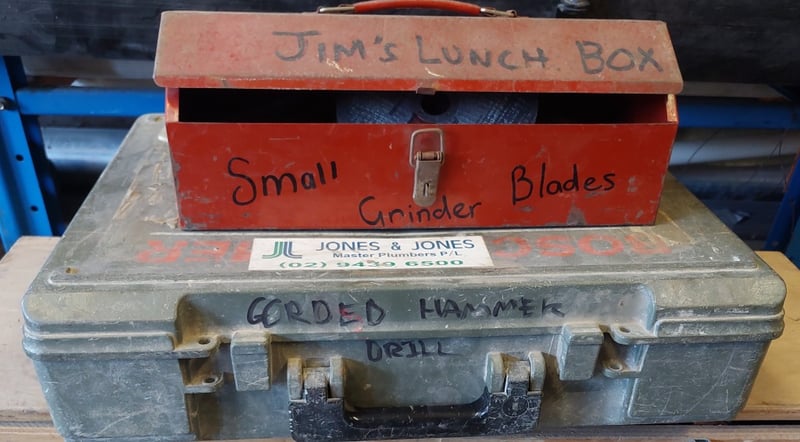 JIM'S LUNCH BOX
Small Grinder Blades
JONES & JONES
Master Plumbers P/L
(02) 9439 6500
CORDED HAMMER
DRILL